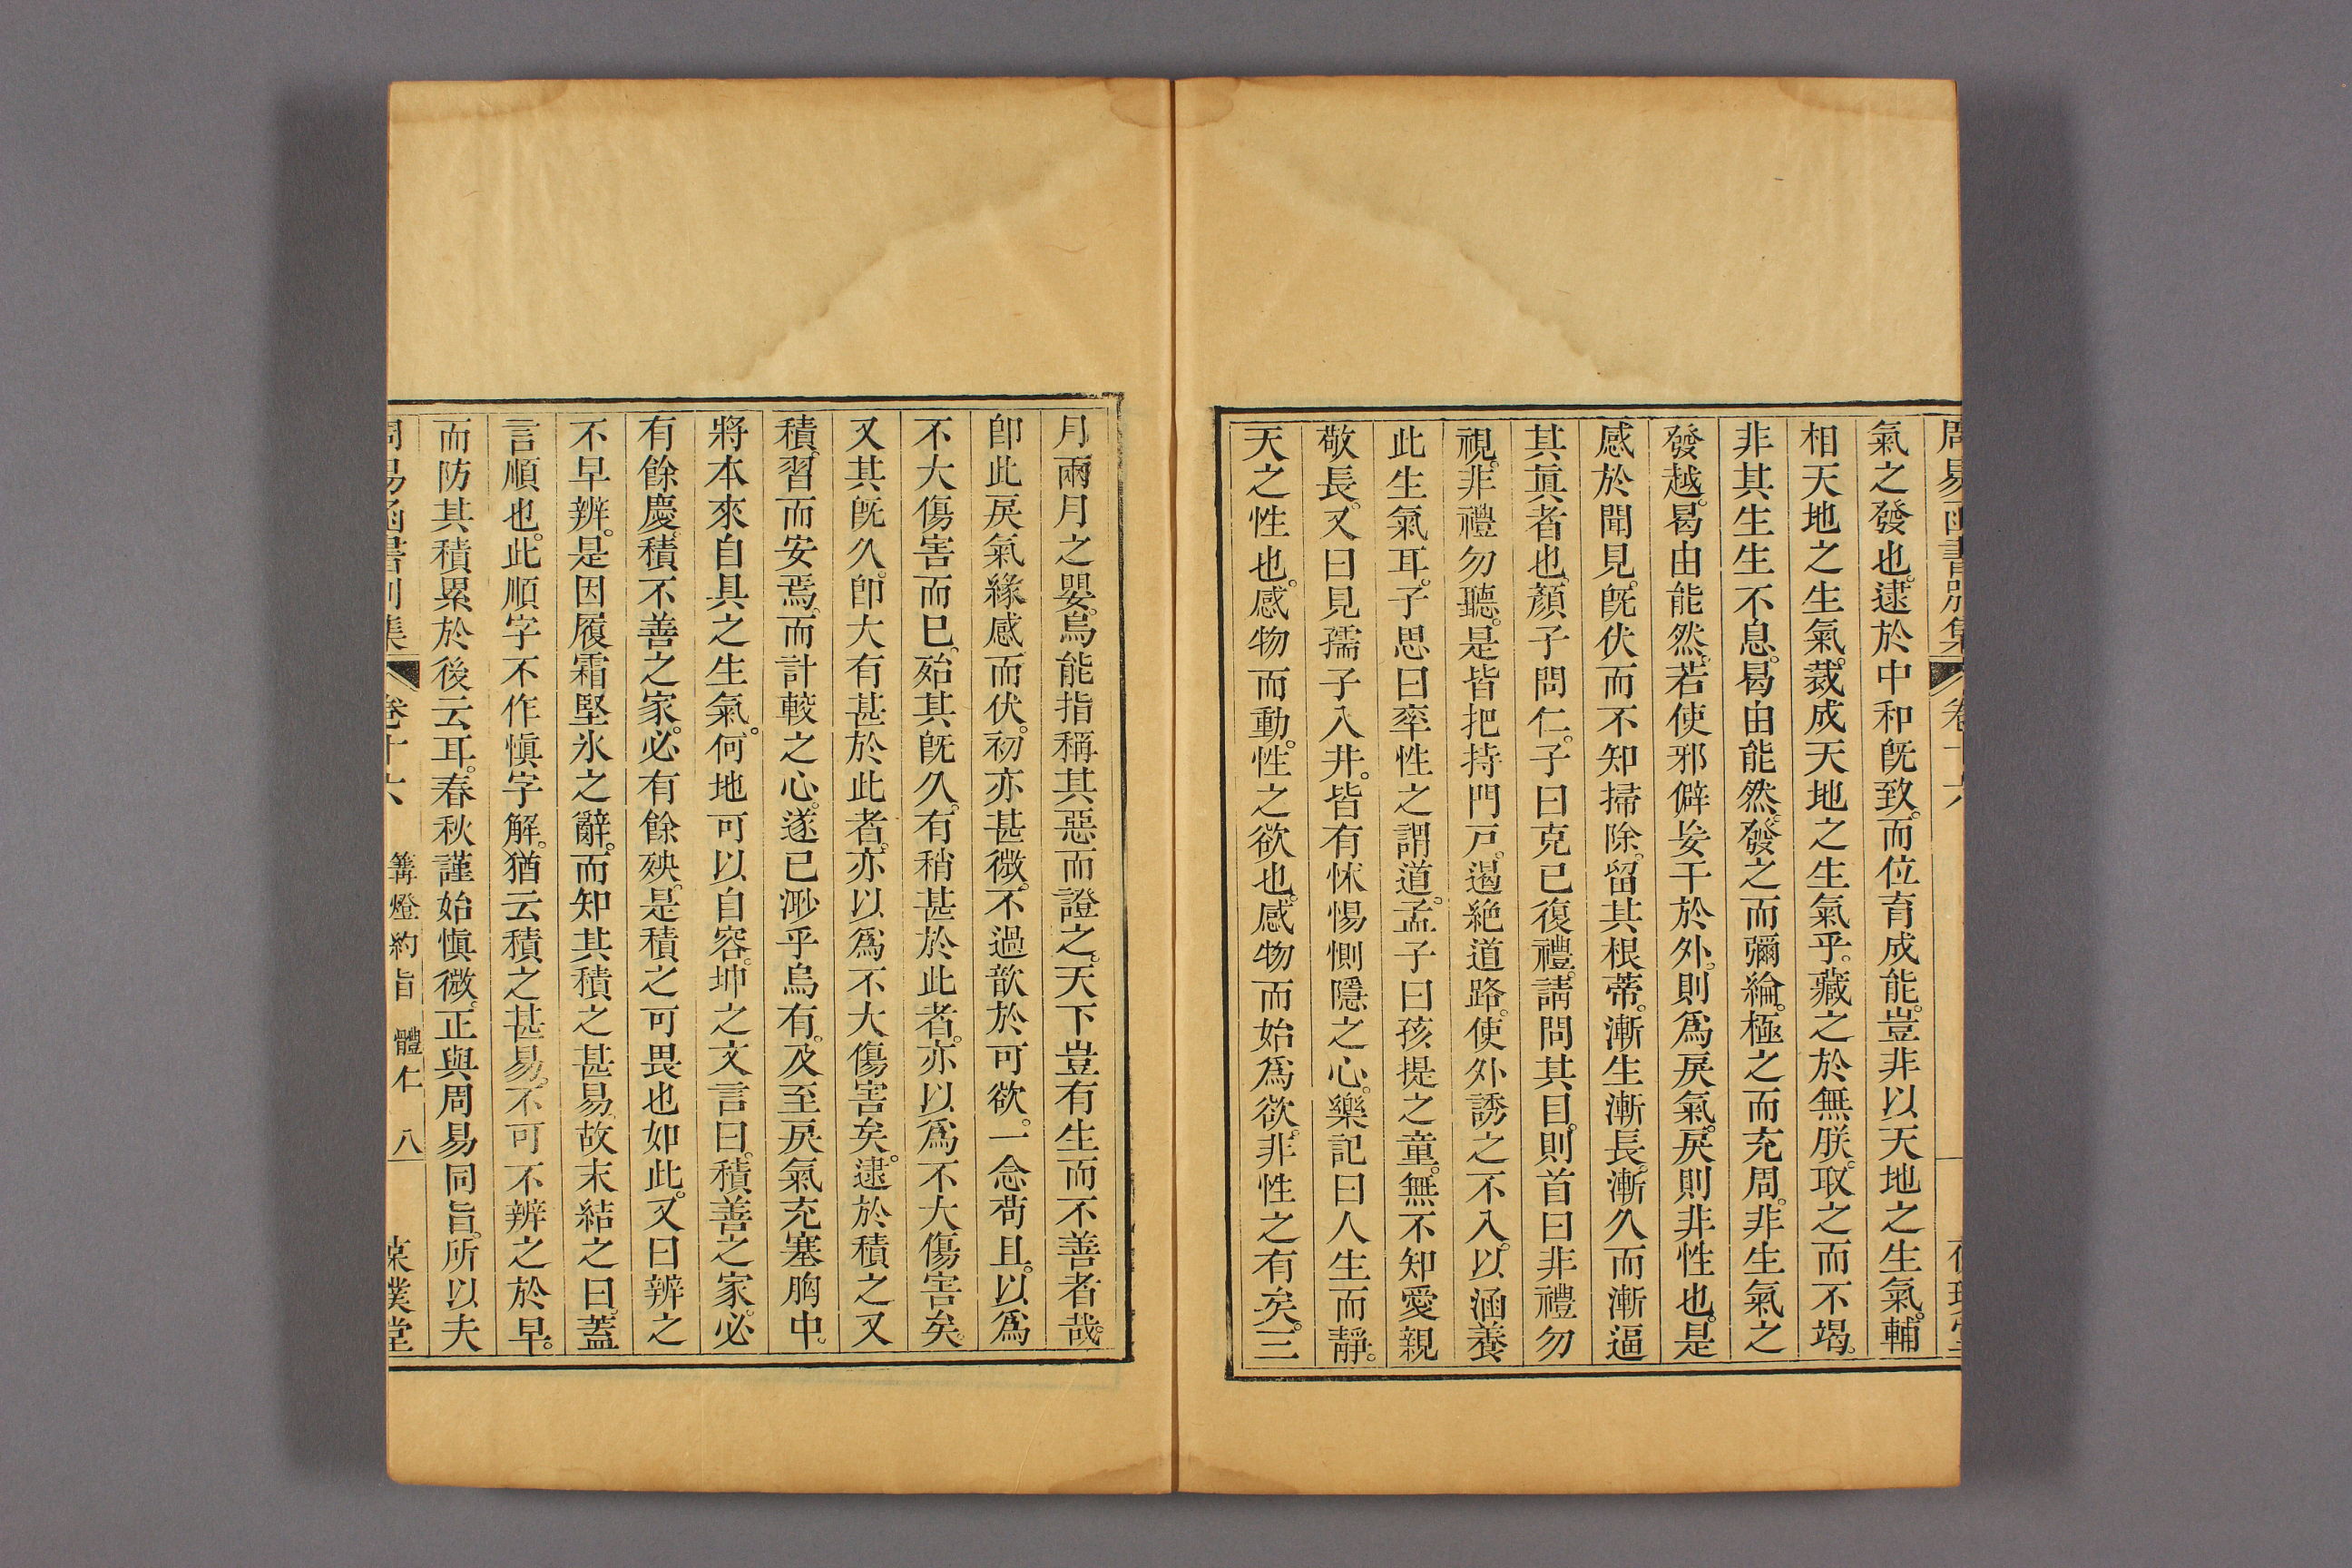 周易函書別集 卷十六
氣之發也。逮於中和旣致。而位育成能。豈非以天地之生氣。輔
相天地之生氣。裁成天地之生氣乎。藏之於無朕。取之而不竭。
非其生生不息。曷由能然。發之而彌綸。極之而充周。非生氣之
發越。曷由能然。若使邪僻妄干於外。則爲戾氣。戾則非性也。是
感於聞見。旣伏而不知掃除。留其根蒂。漸生漸長。漸久而漸逼
其眞者也。顏子問仁。子曰克已復禮。請問其目。則首曰非禮勿
視。非禮勿聽。是皆把持門戸。遏絶道路。使外誘之不入。以涵養
此生氣耳。子思曰率性之謂道。孟子曰孩提之童。無不知愛親
敬長。又曰見孺子入井。皆有怵惕惻隱之心。樂記曰人生而靜。
天之性也。感物而動。性之欲也。感物而始爲欲。非性之有矣。三
月兩月之嬰。烏能指稱其惡而證之。天下豈有生而不善者哉。
卽此戾氣緣感而伏。初亦甚微。不過歆於可欲。一念苟且。以爲
不大傷害而已。殆其旣久。有稍甚於此者。亦以爲不大傷害矣。
又其旣久。卽大有甚於此者。亦以爲不大傷害矣。逮於積之又
積。習而安焉。而計較之心。遂已渺乎烏有。及至戾氣充塞胸中。
將本來自具之生氣。何地可以自容。坤之文言曰。積善之家。必
有餘慶。積不善之家。必有餘殃。是積之可畏也如此。又曰辨之
不早辨。是因履霜堅氷之辭。而知其積之甚易。故末結之曰。蓋
言順也。此順字不作愼字解。猶云積之甚易。不可不辨之於早。
而防其積累於後云耳。春秋謹始愼微。正與周易同旨。所以夫
周易函書別集 卷十六 篝燈約旨 體仁 八 葆璞堂